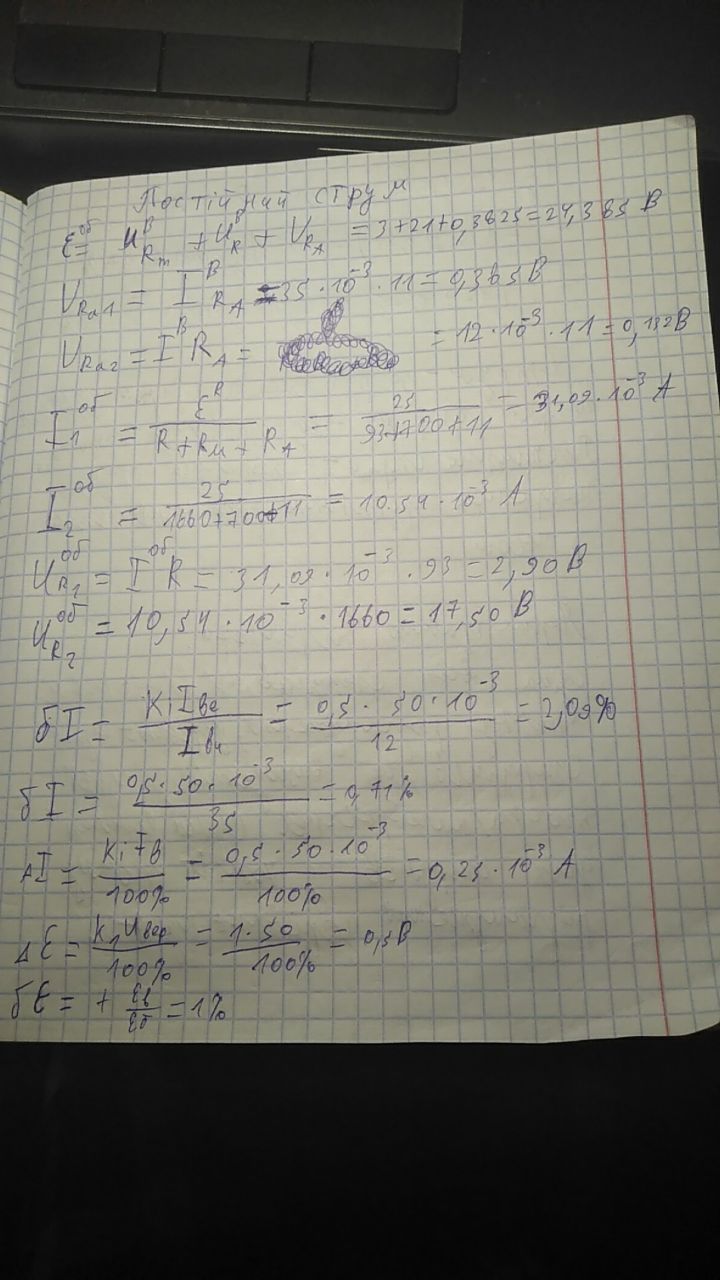 Постійний струм
ε^об = U^в_Rm + U^в_R + U_RA = 3+21+0,3825=24,385 В
U_Ra1 = I^в R_A = 35·10^-3·11=0,385В
U_Ra2 = I^в R_A = = 12·10^-3·11=0,132В
I_1^об = ε^в / (R+Rм+R_A) = 25 / (93+700+11) = 31,09·10^-3 А
I_2^об = 25 / (1660+700+11) = 10.54·10^-3 А
U_R1^об = I^об R = 31,09·10^-3·93=2,90В
U_R2^об = 10,54·10^-3·1660=17,50В
δI = K_i I_ве / I_ви = 0,5·50·10^-3 / 12 = 2,09%
δI = 0,5·50·10^-3 / 35 = 0,71%
ΔI = K_i I_в / 100% = 0,5·50·10^-3 / 100% = 0,25·10^-3 А
Δε = K_1 U_вер / 100% = 1·50 / 100% = 0,5В
δε = + ε_в / ε_б = 1%